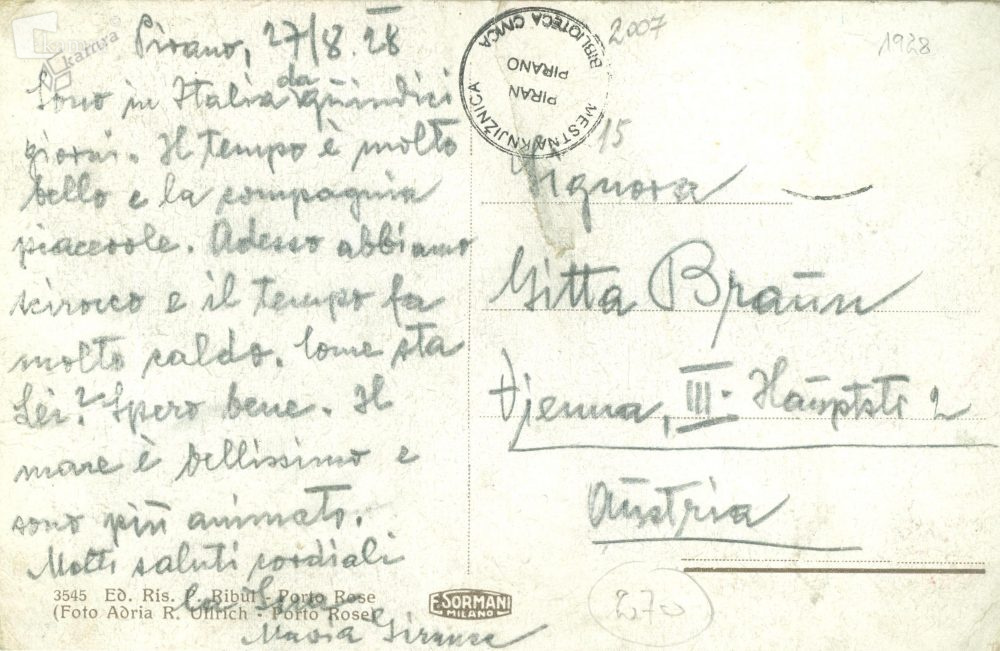 kamra
Pirano, 27/8. 28
Sono in Italia da quindici
giorni. Il tempo è molto
bello e la compagnia
piacevole. Adesso abbiamo
scirocco e il tempo fa
molto caldo. Come sta
Lei? Spero bene. Il
mare è bellissimo e
sono più animato.
Molti saluti cordiali
La Sua
Maria
3545 Ed. Ris. P. Ribul - Porto Rose
(Foto Adria R. Ullrich - Porto Rose)
E. SORMANI
MILANO
MESTNA KNJIŽNICA
PIRAN
PIRANO
BIBLIOTECA CIVICA
2007
1928
15
Signora
Gitta Braun
Vienna, III. Hauptstr 2
Austria
270